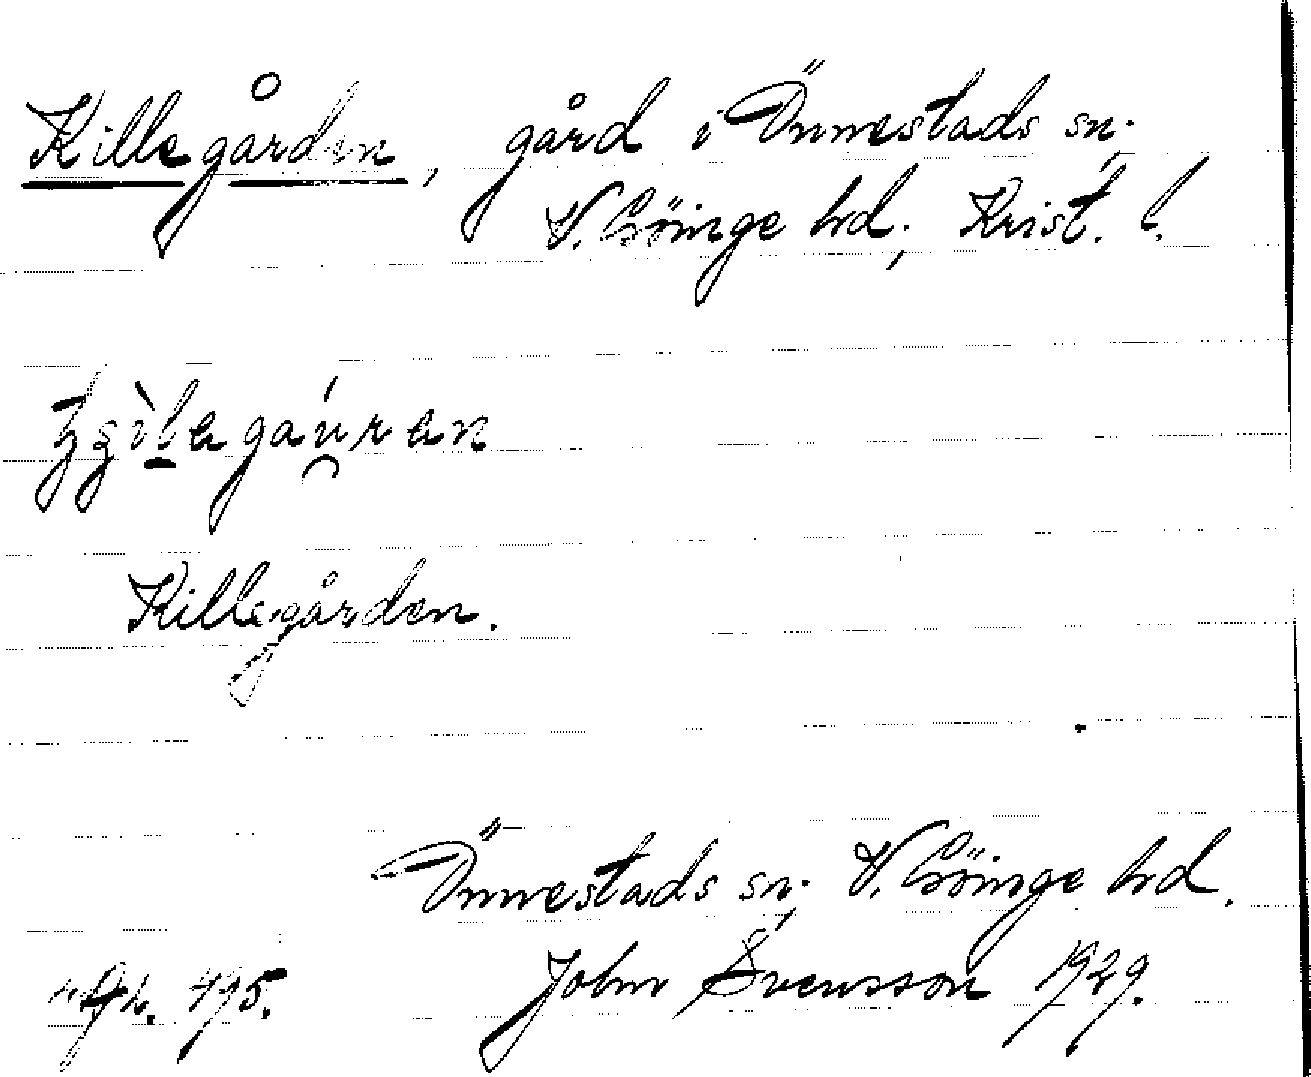 Killegården, gård i Önnestads sn.
V. Göinge hrd; Krist. l.
Killegården.
Önnestads sn. V. Göinge hrd.
495. John Svensson 1929.